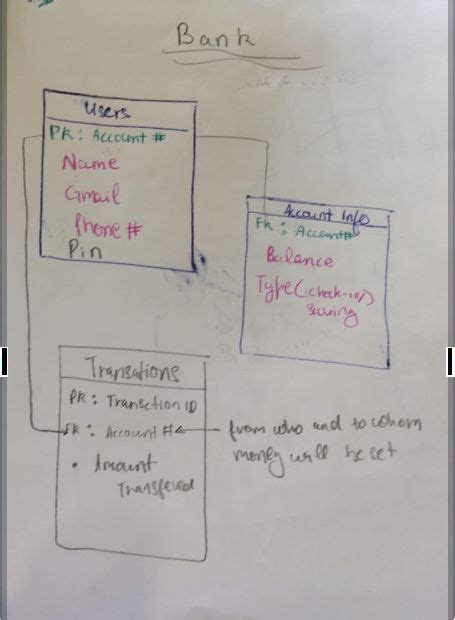 Bank
Users
PK : Account #
Name
Gmail
Phone #
Pin
Account Info
FK : Account#
Balance
Type(check-in/)
saving
Transations
PK : Transction ID
FK : Account #
from who and to whom
money will be set
• Amount
Transfered